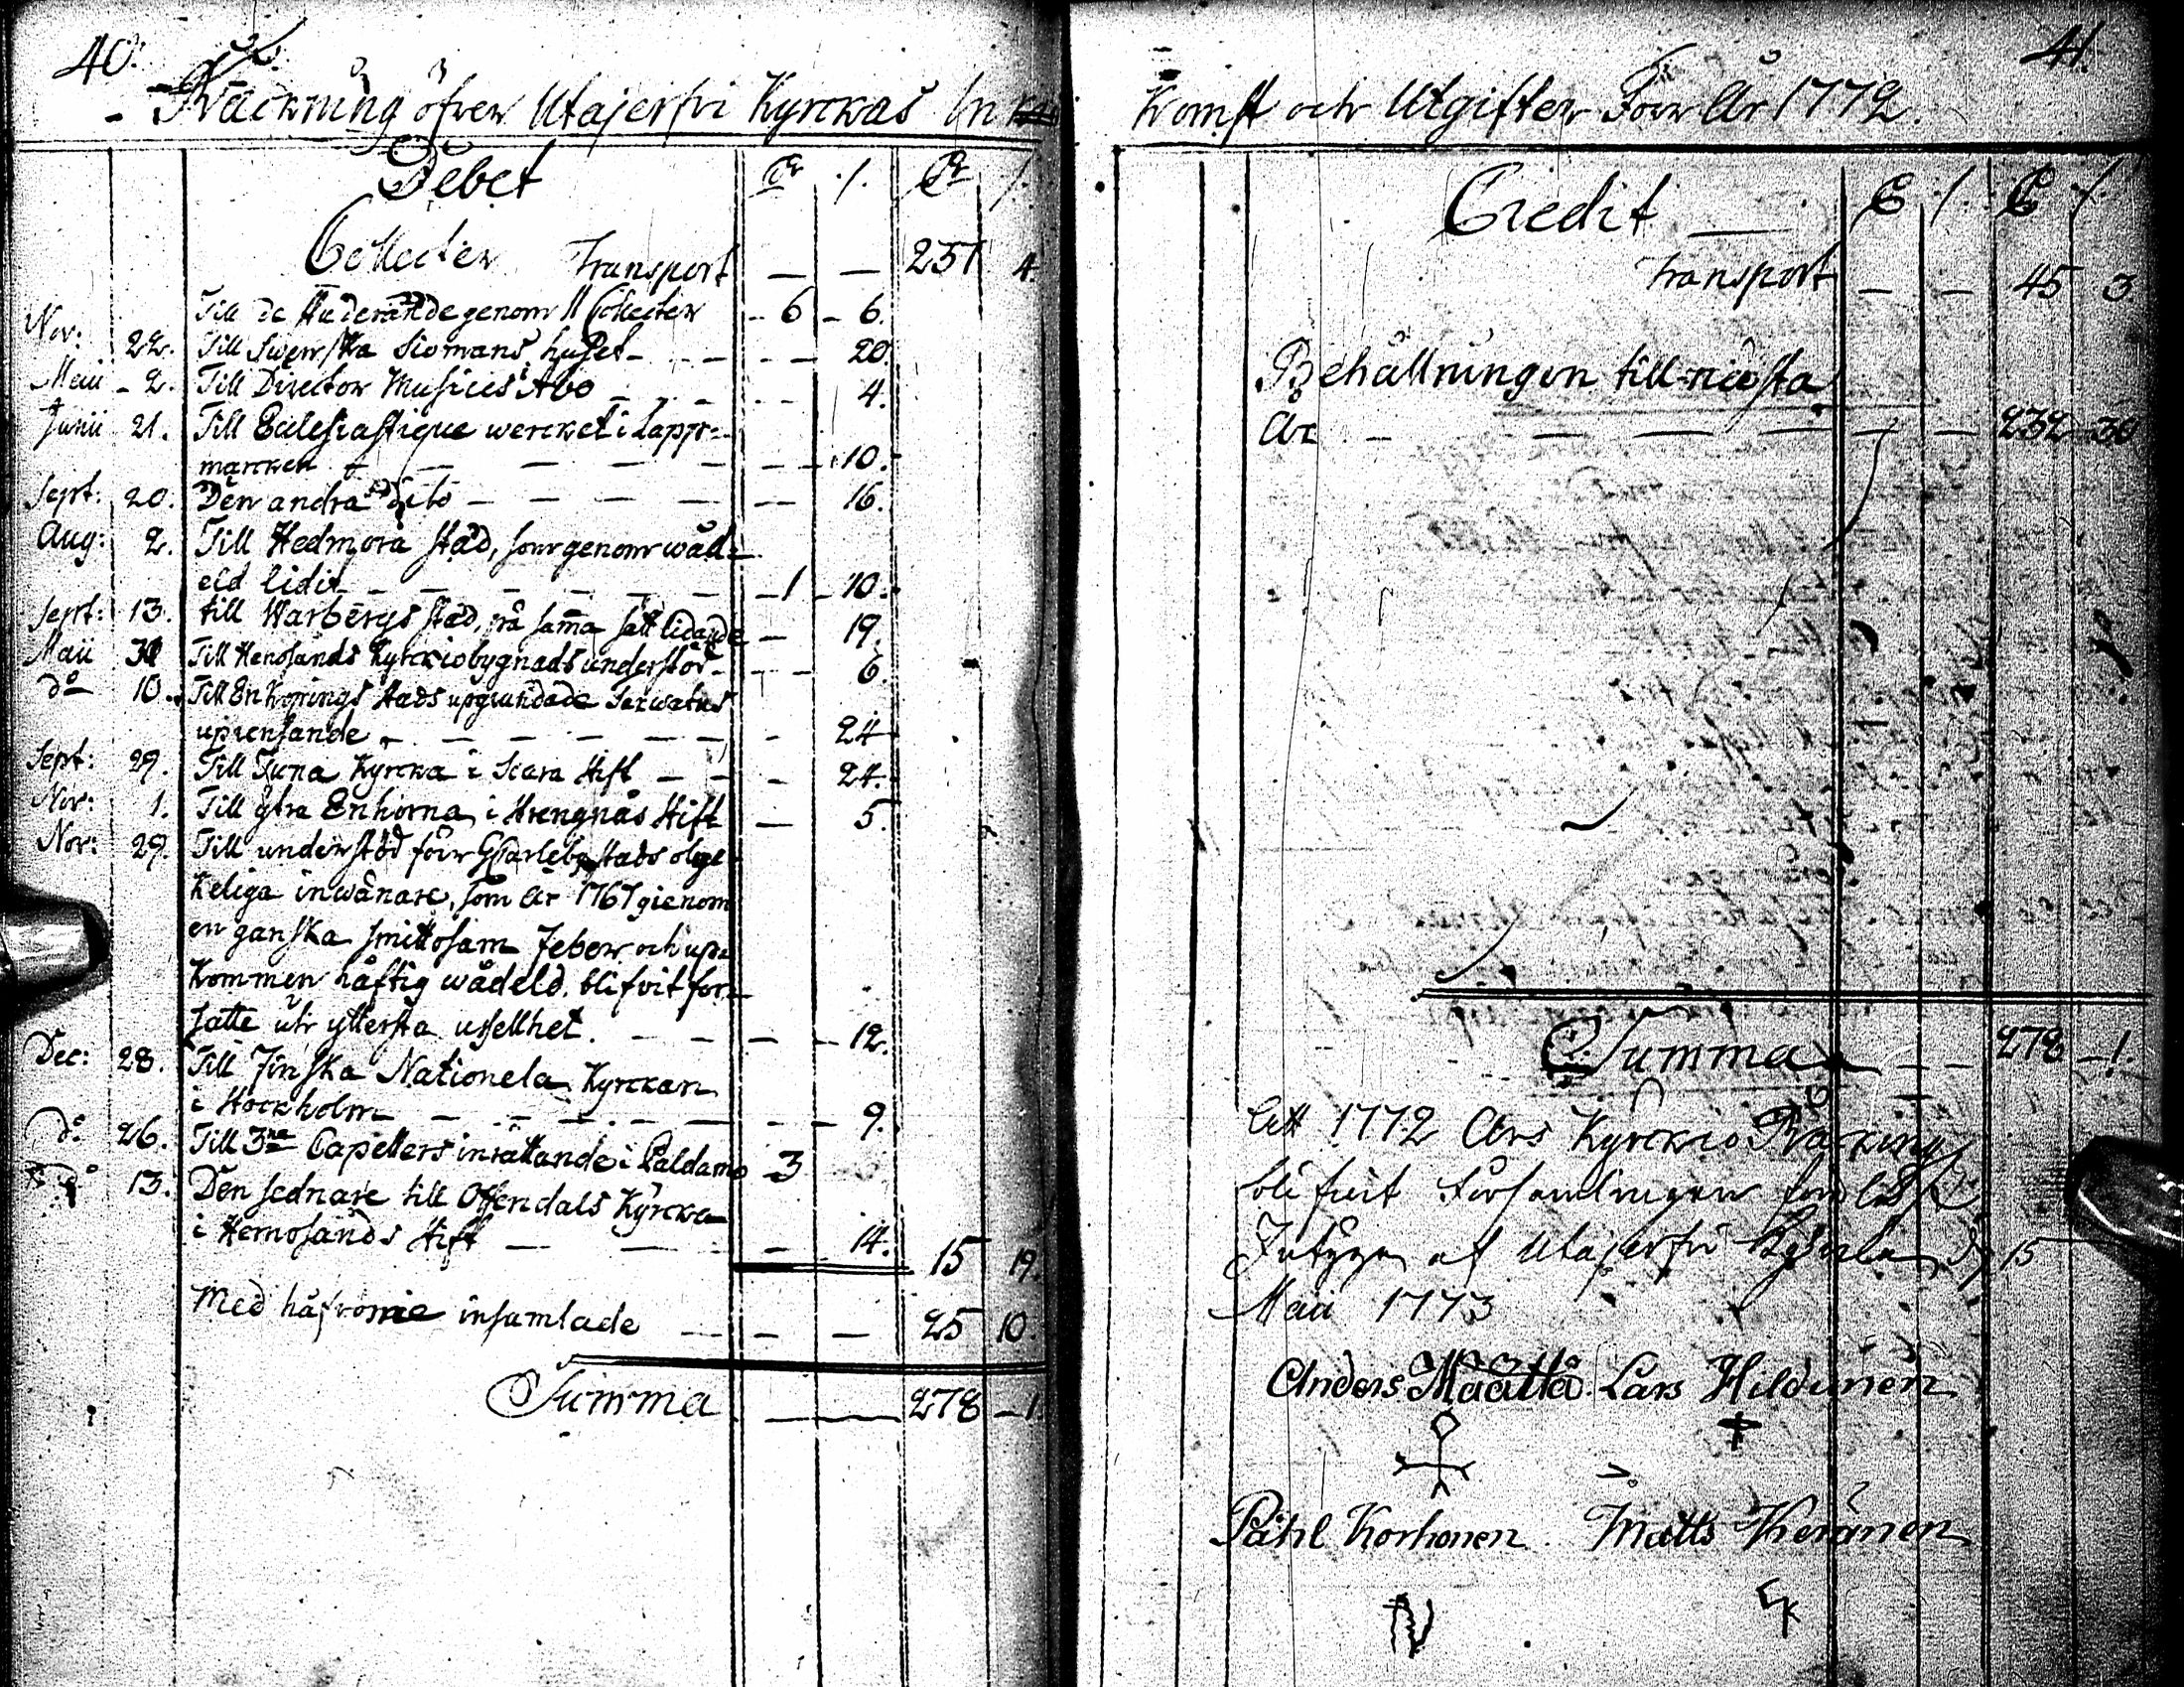 40.
Räckning öfver Utajerfvi Kyrckas In
Debet
Collecter Transport — — 237 4.
Till de Studerande genom 11 Collecter 6 6.
Nov: 22. Till Swenska Siomans huset 20.
Maii 2. Till Director Musices i Åbo 4.
Junii 21. Till Ecclesiastique wercket i Lapp-
marcken 10.
Sept: 20. Den andra dito 16.
Aug: 2. Till Hedmora stad, som genom wåd-
eld lidit 1 10.
Sept: 13. till Warbergs stad, på samma sätt lidande 19.
Maii 31 Till Henosands Kyrckiobygnads understöd 6.
do 10. Till Enkopings stads upgrundade
uprensande 24
Sept: 29. Till Tuna Kyrcka i Scara Stift 24.
Nov: 1. Till ytra Enhorna i Strengnäs Stift 5.
Nov: 29. Till understöd för GCarleby stads olyc-
keliga inwånare, som år 1767 gienom
en ganska smittosam Feber och up-
kommen häftig wådeld, blifvit for-
satte uti yttersta uselhet. 12.
Dec: 28. Till Finska Nationela Kyrckan
i Stockholm 9.
do 26. Till 3ne Capellers inrättande i Paldamo 3
do 13. Den sednare till Offendals Kyrcka
i Hernosands Stift 14. 15 19.
Med håfvorne insamlade — — 25 10.
Summa 278 1.
41.
Komst och Utgifter För År 1772.
Credit
Transport — — 45 3
Behållningen till nästa
År 232 30
Summa 278 1.
Att 1772 Års Kyrckio Räckning
blifvit Församlingen
Intygar af Utajerfvi d. 15
Maii 1773
Anders Määttä. Lars Hildunen
Påhl Korhonen Matts Keränen